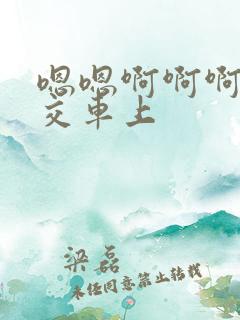 嗯嗯啊啊啊
交车上
梁磊
未经同意禁止转载